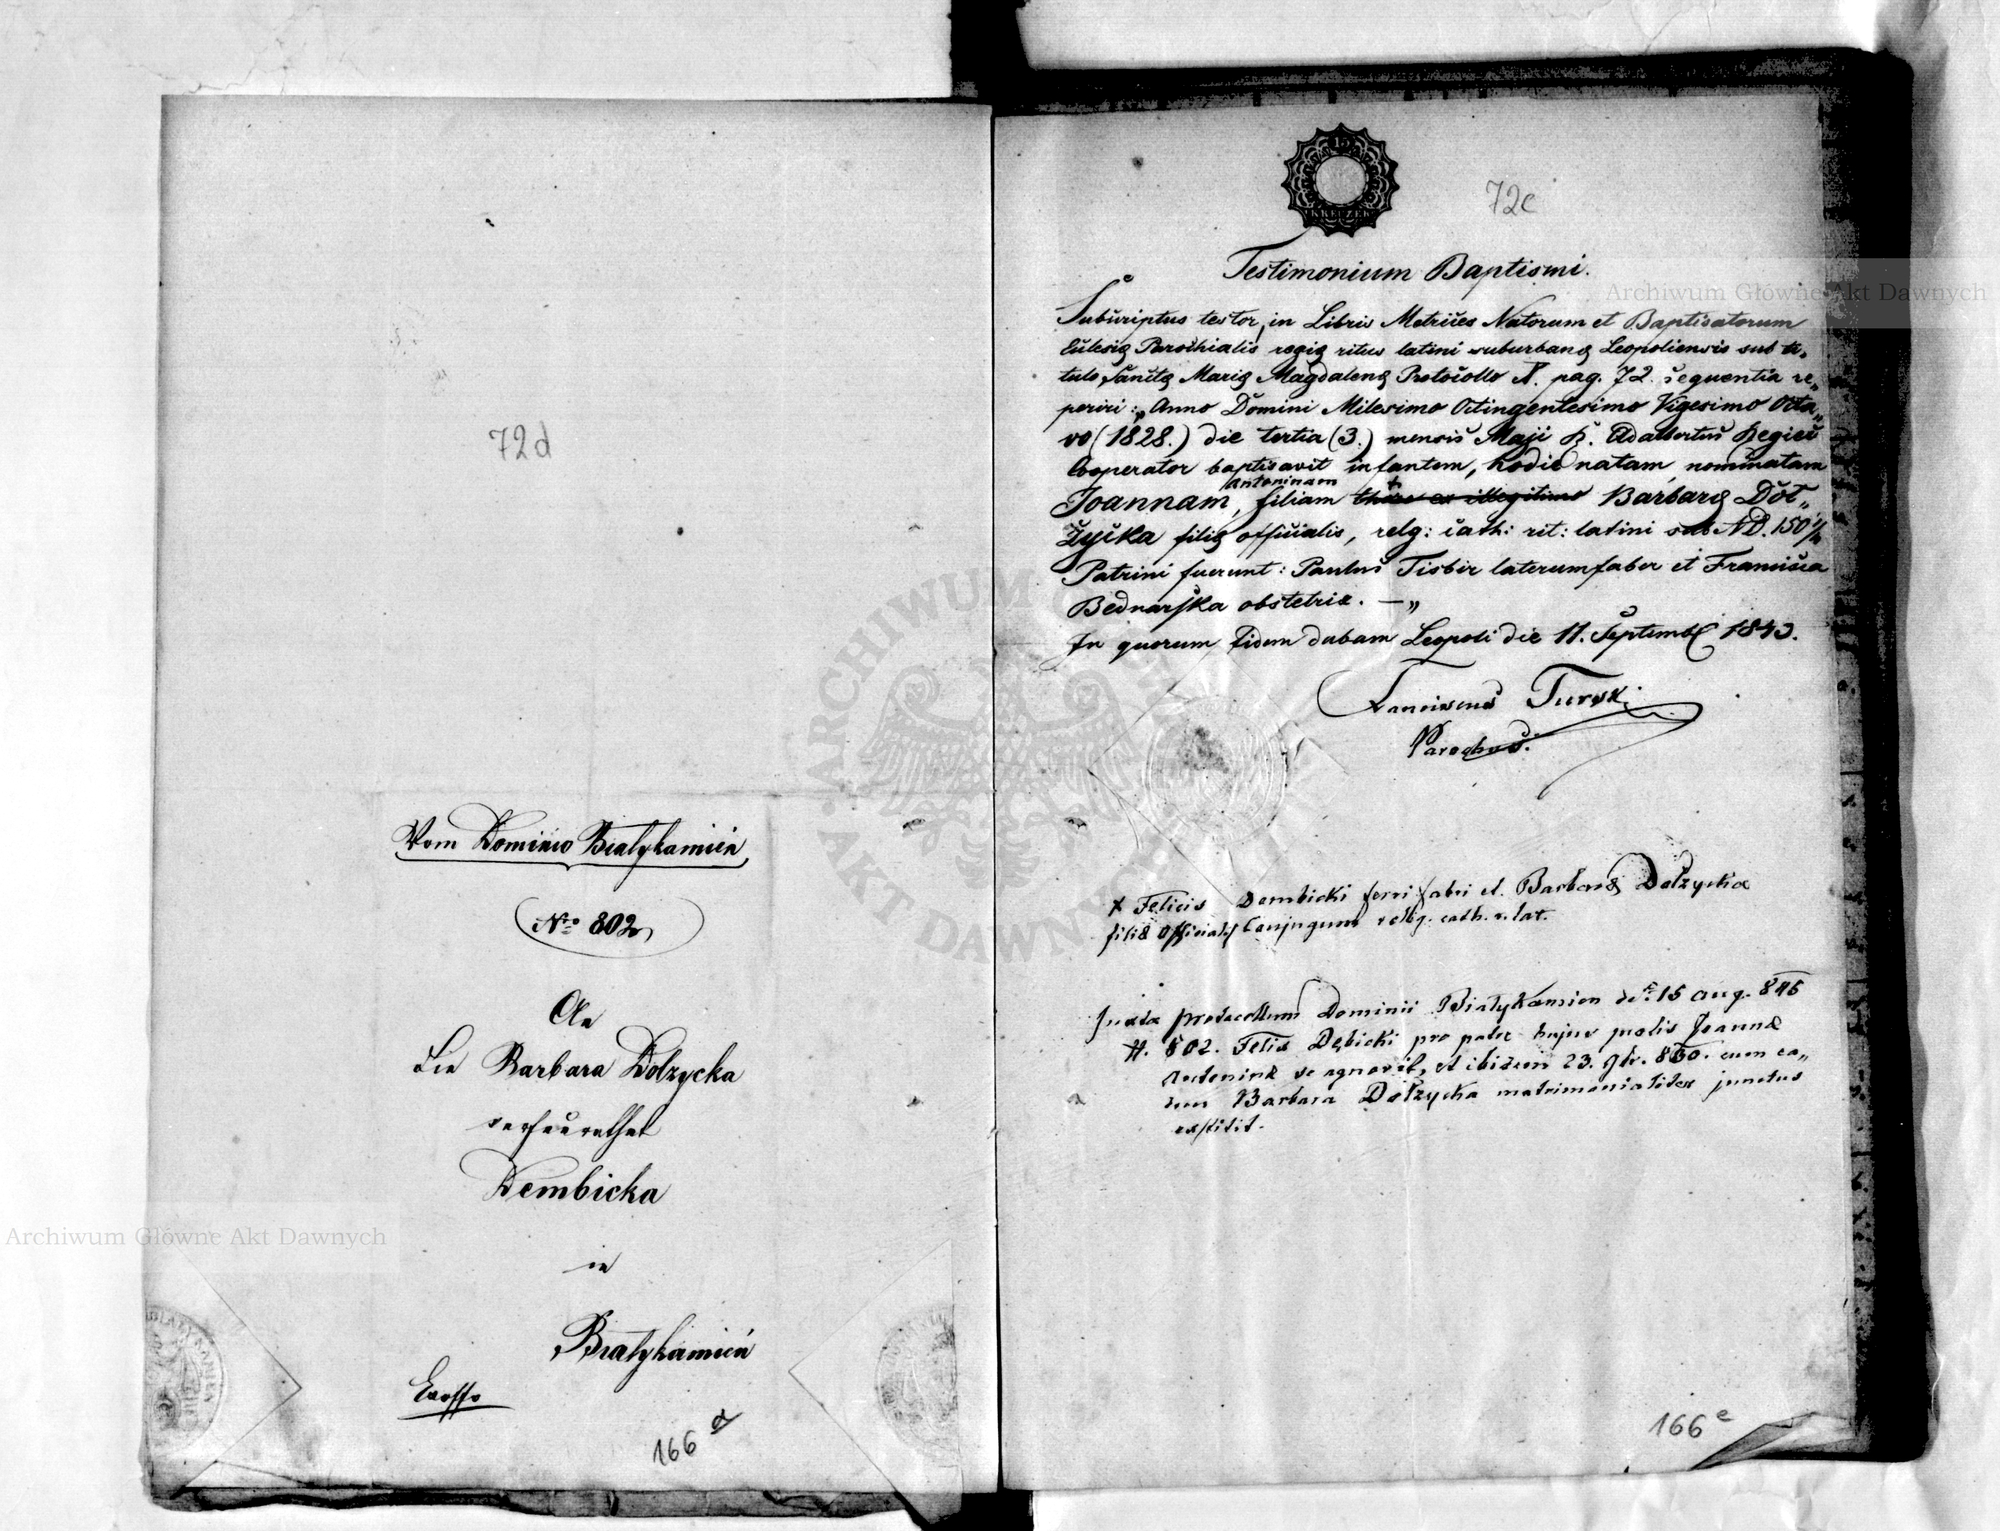 72d
Vom Dominio Białykamień
Nro 802
An
die Barbara Dolzycka
verheurathet
Dembicka
in
Białykamień
Exoffo
166 d
KREUZER
72e
Testimonium Baptismi.
Subscriptus testor, in Libris Metrices Natorum et Baptisatorum
Ecclesię Parochialis regię ritus latini suburbanę Leopoliensis sub ti„
tulo Sanctę Marię Magdalenę Protocollo N. pag. 72. sequentia re„
periri: „Anno Domini Milesimo Octingentesimo Vigesimo Octa„
vo (1828.) die tertia (3.) mensis Maji P. Adalbertus Regieć
Cooperator baptisavit infantem, hodie natam nominatam
Antoninam
Joannam, filiam thori ex illegitimo Barbarę Doł„
życka filię officialis, relg: cath: rit: latini sub ND. 150 1/4
Patrini fuerunt: Paulus Tisbir laterumfaber et Francisca
Bednarska obstetrix. —„
In quorum fidem dabam Leopoli die 11. Septemb 1843.
Franciscus Turski
Parochus.
+ Felicis Dembicki ferri fabri et Barbarę Dołzycka
filię Officialis Conjugum relig. cath. r. lat.
Juxta protocollum Dominii Białykamien de 15 aug. 845
N. 802. Felix Dębicki pro patre hujus prolis Joannę
Antoninę se agnovit, et ibidem 23. 9br. 830. cum ea„
dem Barbara Dołzycka matrimonialiter junctus
exstitit.
166 e
Archiwum Główne Akt Dawnych
Archiwum Główne Akt Dawnych
ARCHIWUM GŁÓWNE AKT DAWNYCH